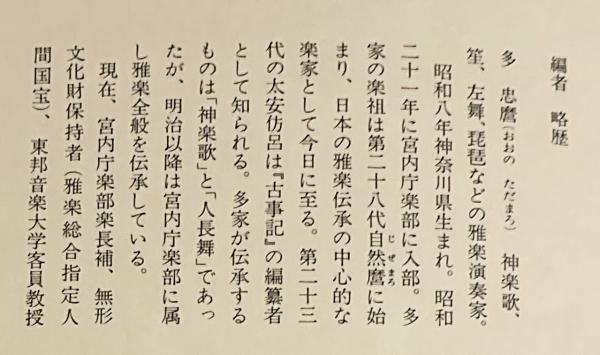 編者　略歴
多　忠麿(おおの　ただまろ)　神楽歌、
笙、左舞、琵琶などの雅楽演奏家。
　昭和八年神奈川県生まれ。昭和
二十一年に宮内庁楽部に入部。多
家の楽祖は第二十八代自然麿(じぜまろ)に始
まり、日本の雅楽伝承の中心的な
楽家として今日に至る。第二十三
代の太安仿呂は『古事記』の編纂者
として知られる。多家が伝承する
ものは「神楽歌」と「人長舞」であっ
たが、明治以降は宮内庁楽部に属
し雅楽全般を伝承している。
　現在、宮内庁楽部楽長補、無形
文化財保持者(雅楽総合指定人
間国宝)、東邦音楽大学客員教授